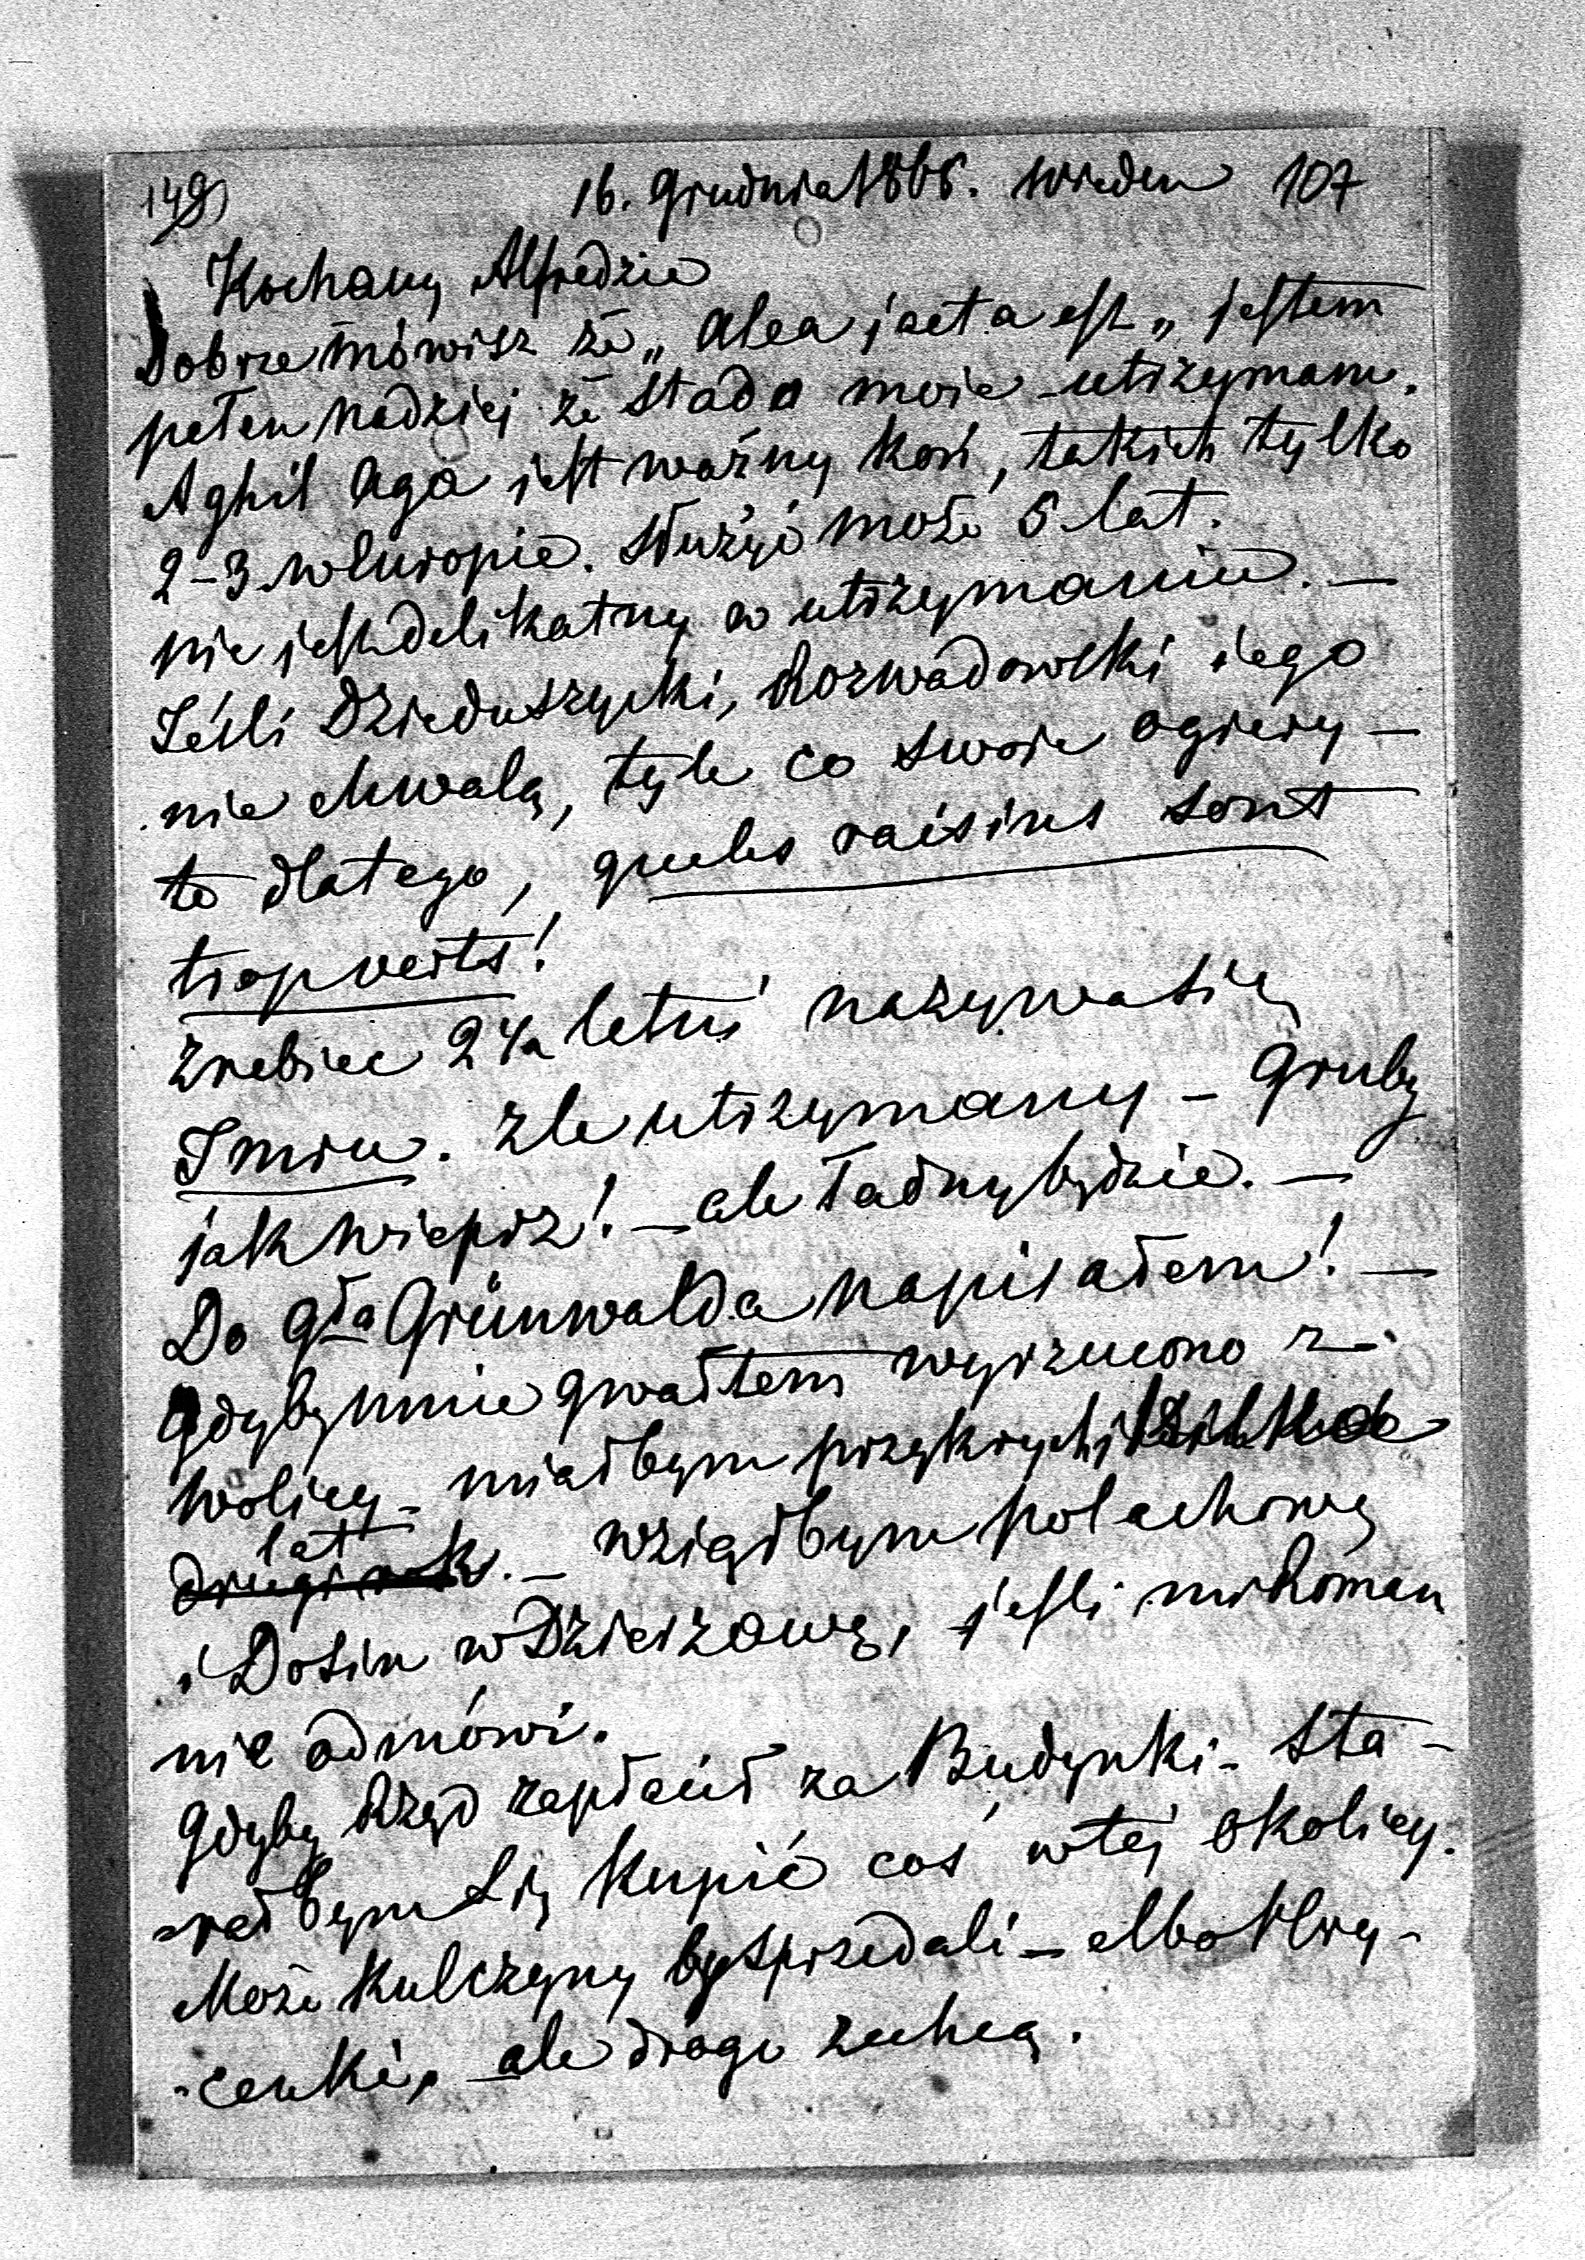 149) 16. Grudnia 1865. Wieden 107
Kochany Alfredzie
Dobrze mówisz że „ alea jacta est „ jestem
pełen nadziej że stado moie utrzymam.
Aghil Aga jest ważny koń, takich tylko
2-3 w Europie. Służyć może 5 lat.
nie jest delikatny w utrzymaniu. —
Jeśli Dzieduszycki, Rozwadowski iego
nie chwalą, tyle co swoie ogiery —
to dlatego, queles raisins sont
trop verts!
Zrebiec 2 letni nazywa się
. zle utrzymany — Gruby
jak wieprz! — ale ładny będzie. —
Do Gła Grünwalda napisałem! —
Gdyby mnie gwałtem wyrzucono z
Wolicy — miałbym przykrych kilka
lat
drugi rok. — wziąłbym Polachową
i Dosin w Dzierzawę, jesli mi Roman
nie odmówi.
Gdyby Rząd zapłacił za Budynki — sta-
-rałbym się kupić coś w tej okolicy.
Może Kulczyny by sprzedali — albo Hry-
-cenki, ale drogo zechcą.